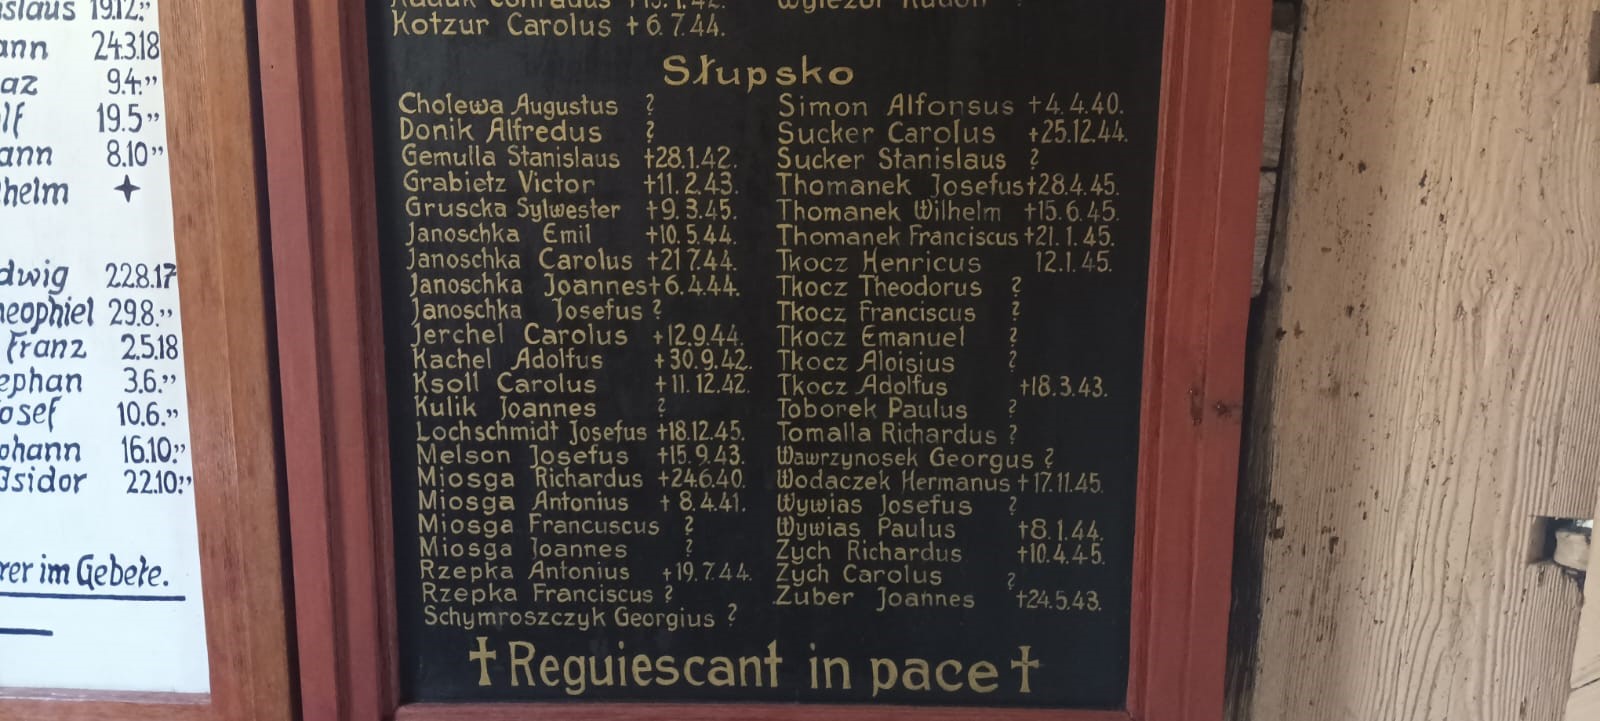 slaus 19.12."
ann 24.3.18
az 9.4."
lf 19.5"
ann 8.10"
helm
dwig 22.8.17
heophiel 29.8."
Franz 2.5.18
ephan 3.6."
osef 10.6."
ohann 16.10."
Isidor 22.10."
rer im Gebete.
Kotzur Carolus +6.7.44.
Słupsko
Cholewa Augustus ?
Donik Alfredus ?
Gemulla Stanislaus +28.1.42.
Grabietz Victor +11.2.43.
Gruscka Sylwester +9.3.45.
Janoschka Emil +10.5.44.
Janoschka Carolus +21 7.44.
Janoschka Joannes +6.4.44.
Janoschka Josefus ?
Jerchel Carolus +12.9.44.
Kachel Adolfus +30.9.42.
Ksoll Carolus +11.12.42.
Kulik Joannes ?
Lochschmidt Josefus +18.12.45.
Melson Josefus +15.9.43.
Miosga Richardus +24.6.40.
Miosga Antonius +8.4.41.
Miosga Francuscus ?
Miosga Joannes ?
Rzepka Antonius +19.7.44.
Rzepka Franciscus ?
Schymroszczyk Georgius ?
Simon Alfonsus +4.4.40.
Sucker Carolus +25.12.44.
Sucker Stanislaus ?
Thomanek Josefus +28.4.45.
Thomanek Wilhelm +15.6.45.
Thomanek Franciscus +21.1.45.
Tkocz Henricus 12.1.45.
Tkocz Theodorus ?
Tkocz Franciscus ?
Tkocz Emanuel ?
Tkocz Aloisius ?
Tkocz Adolfus +18.3.43.
Toborek Paulus ?
Tomalla Richardus ?
Wawrzynosek Georgus ?
Wodaczek Hermanus +17.11.45.
Wywias Josefus ?
Wywias Paulus +8.1.44.
Zych Richardus +10.4.45.
Zych Carolus ?
Zuber Joannes +24.5.43.
† Reguiescant in pace †